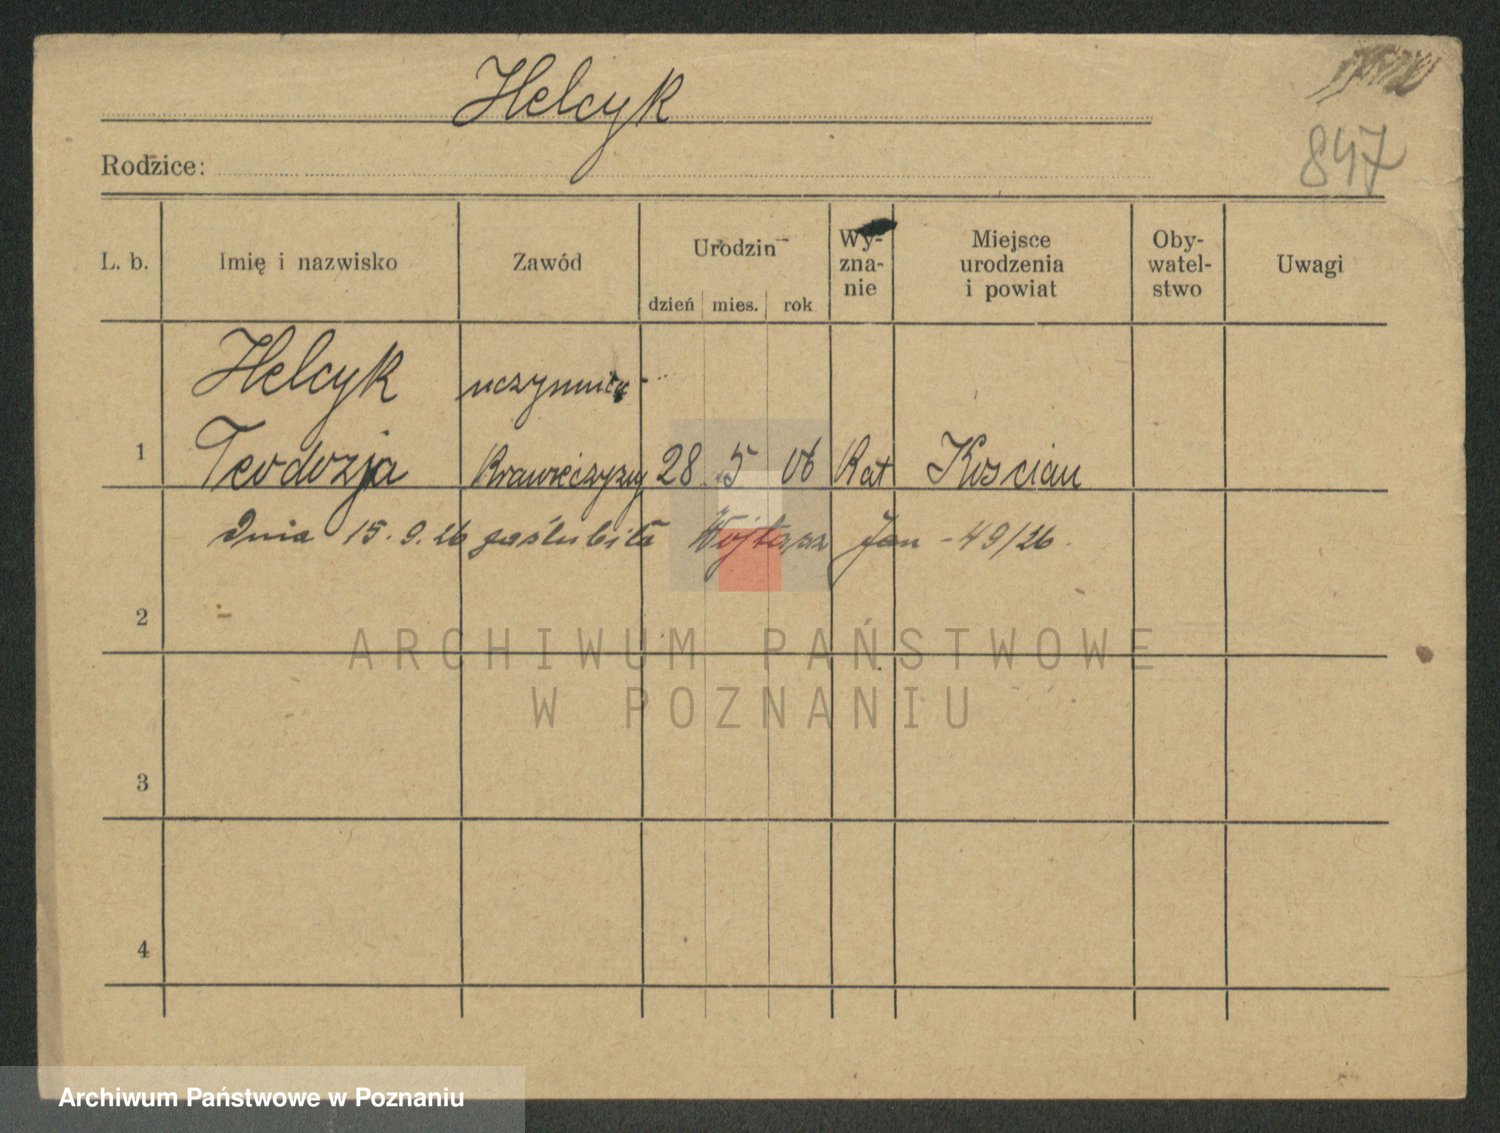 Helcyk
847
Rodzice:
L. b. Imię i nazwisko Zawód Urodzin Wy-zna-nie Miejsce urodzenia i powiat Oby-watel-stwo Uwagi
dzień mies. rok
Helcyk
1 Teodozja 28 5 06 Kat Kościan
Dnia 15.9.26 poślubiła Wojtasz Jan - 49/26.
2
ARCHIWUM PAŃSTWOWE
W POZNANIU
3
4
Archiwum Państwowe w Poznaniu